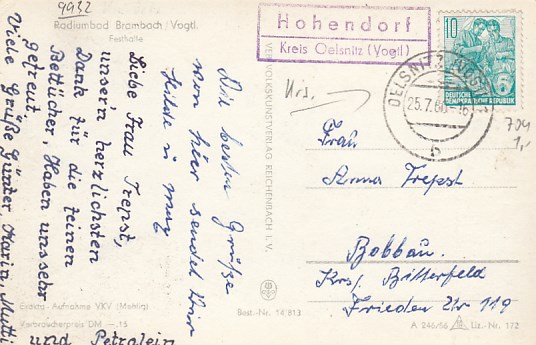 9932
Radiumbad Brambach/Vogtl.
Festhalle
Liebe Frau Trepst,
unser'n herzlichsten
Dank für die feinen
Betttücher, Haben uns sehr
gefreut
Viele Grüße Günter, Karin, Mutti
und Petralein
Die besten Grüße
von hier sendet
Exakta-Aufnahme VKV (Mehlig)
Verbraucherpreis DM -,15
VEB VOLKSKUNSTVERLAG REICHENBACH I. V.
Best.-Nr. 14 813
Hohendorf
Kreis Oelsnitz (Vogtl)
10
DEUTSCHE
DEMOKRATISCHE REPUBLIK
OELSNITZ (VOGTL)
25.7.60-16
c
704
1,-
Frau
Anna Trepst
Bobbau.
Krs. Bitterfeld
Frieden Str 119
A 246/56 Liz.-Nr. 172